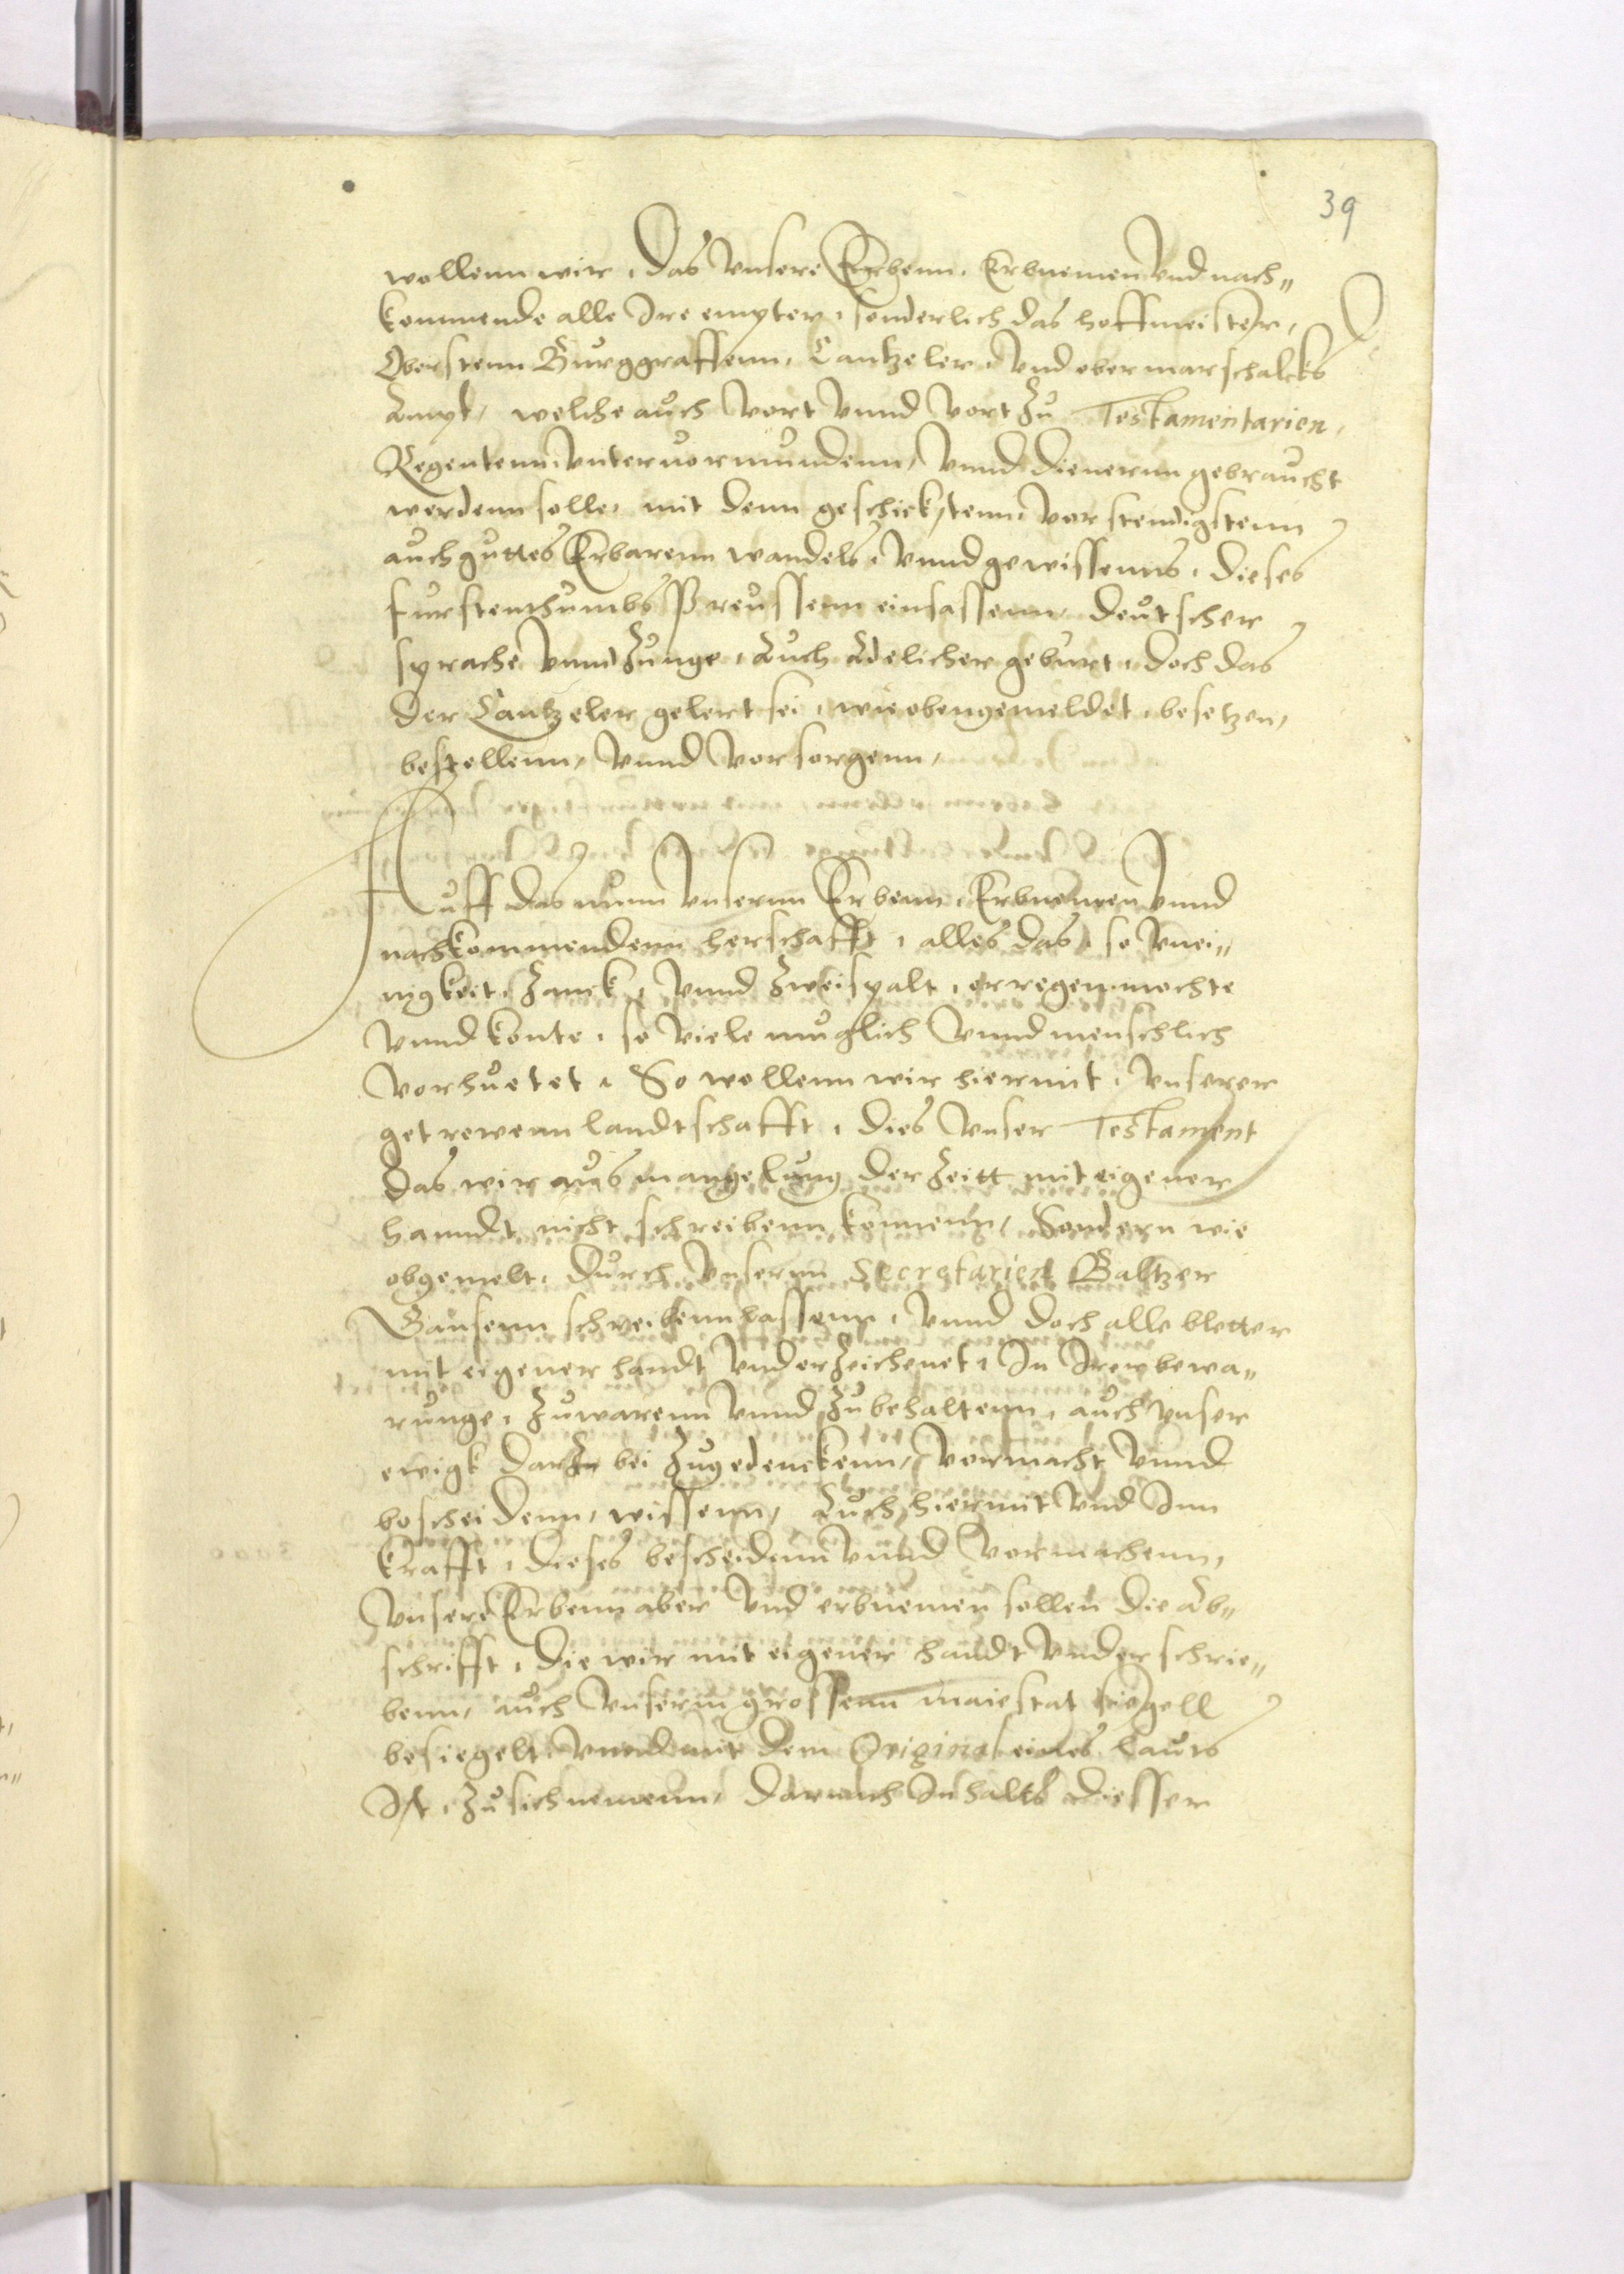 39
wollenn wir, Das Vnsere Erbenn, Erbnemen Vnd nach„
kommende alle Ire empter, sonderlich das hoffmeister,
Oberstenn Burggraffenn, Cantzeler, Vnd obermarschalcks
Ampt, welche auch Vort Vnnd Vort Zu Testamentarien,
Regentenn, Vnteruormundenn, Vnnd Dienernn gebraucht
werdenn solle, mit denn geschicktenn, Vorstendigstenn
auch guttes Erbarenn wandels, Vnnd gewissenns, dieses
furstenthumbs Preussenn einsassenn, deutscher
sprache Vnnd Zunge, Auch Adelicher geburt, doch das
der Cantzeler gelert sei, wie obengemeldet, besetzen,
bestellenn, Vnnd Vorsorgenn,
Auff das nunn Vnsernn Erbenn, Erbnemen Vnnd
nachkommendenn herschafft, alles das, so Vnei„
nigkeit, Zanck, Vnnd Zweispalt, erregen mochte
Vnnd konte, so Viele muglich Vnnd menschlich
Vorhuetet, So wollenn wir hiermit, Vnserer
getrewenn landtschafft, dies Vnser Testament
das wir aus mangelung der Zeitt mit eigener
hanndt nicht schreibenn konnenn, Sondern wie
obgemelt, durch Vnsernn Secretarien Baltzer
Gansenn schreibenn lassenn, Vnnd doch alle bletter
mit eigener handt Vnderzeichenet, In Irer bewa„
runge, Zuwarenn Vnnd Zubehaltenn, auch Vnser
ewigk dar bei Zugedenckenn, Vormacht Vnnd
bescheidenn, wissenn, Auch hiermit Vnd Inn
krafft, dieses bescheidenn Vnnd Vormachenn,
Vnsere Erbenn aber Vnd erbnemen sollen die Ab„
schrifft, die wir mit eigener handt Vnderschrie„
benn, auch Vnserm grossenn maiestat siegell
besiegelt, Vnnd mit dem Original eines lauts
Ist, Zu sich nemenn, darnach Inhalts diesser